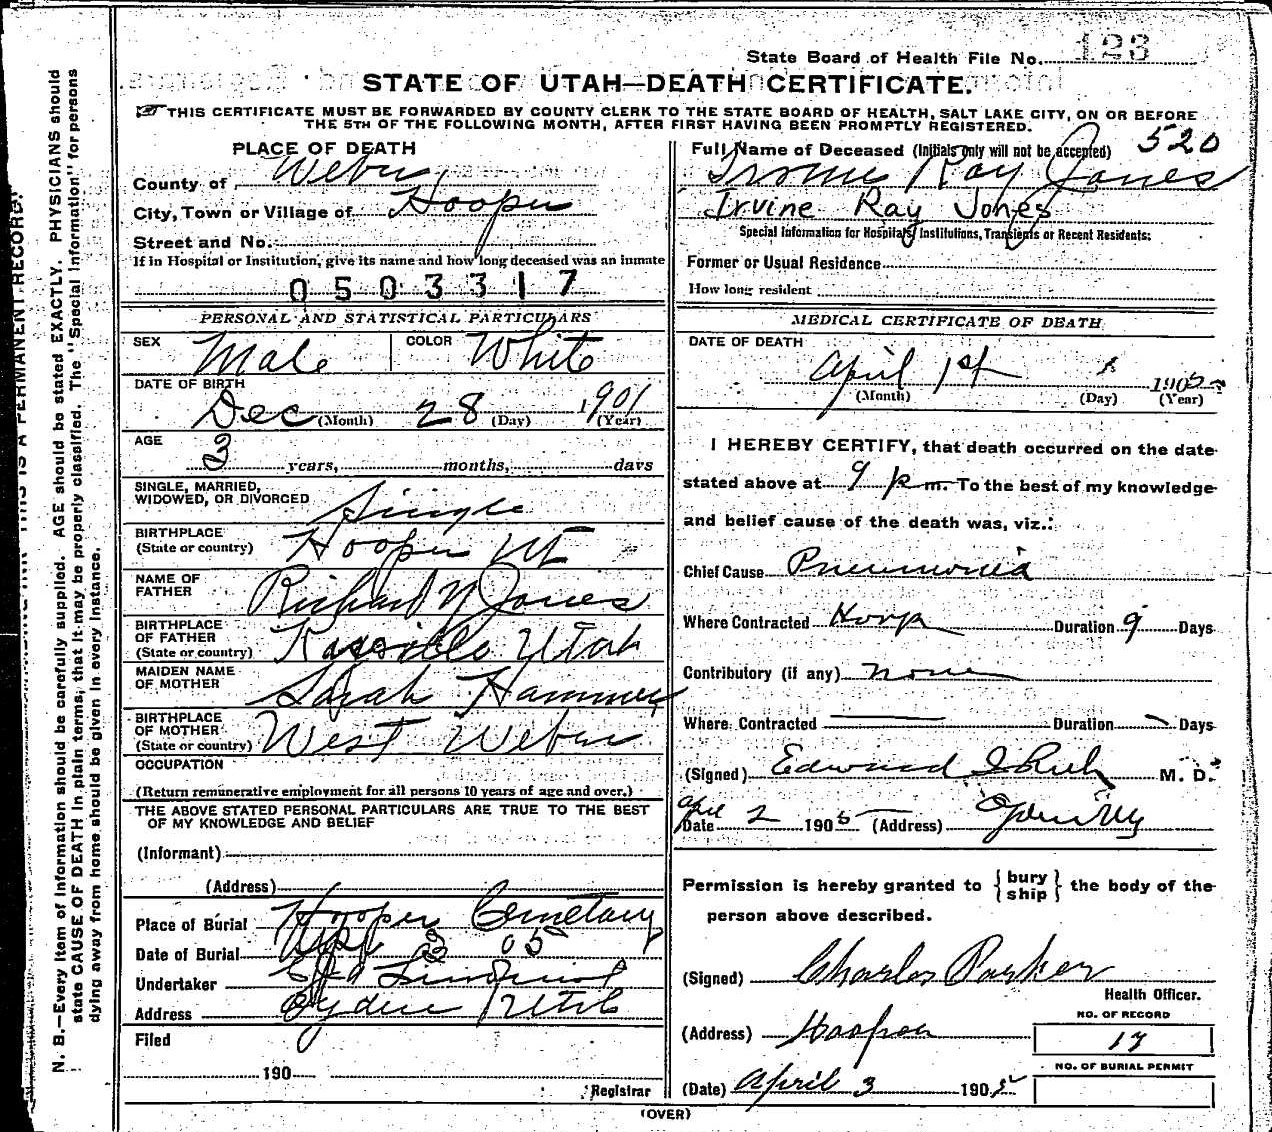 State Board of Health File No. 123
STATE OF UTAH—DEATH CERTIFICATE.
THIS CERTIFICATE MUST BE FORWARDED BY COUNTY CLERK TO THE STATE BOARD OF HEALTH, SALT LAKE CITY, ON OR BEFORE
THE 5TH OF THE FOLLOWING MONTH, AFTER FIRST HAVING BEEN PROMPTLY REGISTERED.
PLACE OF DEATH
County of Weber
City, Town or Village of Hooper
Street and No.
If in Hospital or Institution, give its name and how long deceased was an inmate
0503317
PERSONAL AND STATISTICAL PARTICULARS
SEX Male COLOR White
DATE OF BIRTH
Dec (Month) 28 (Day) 1901 (Year)
AGE
3 years, months, days
SINGLE, MARRIED,
WIDOWED, OR DIVORCED Single
BIRTHPLACE
(State or country) Hooper Ut
NAME OF
FATHER Richard N Jones
BIRTHPLACE
OF FATHER
(State or country) Kaysville Utah
MAIDEN NAME
OF MOTHER Sarah Hammer
BIRTHPLACE
OF MOTHER
(State or country) West Weber
OCCUPATION
(Return remunerative employment for all persons 10 years of age and over.)
THE ABOVE STATED PERSONAL PARTICULARS ARE TRUE TO THE BEST
OF MY KNOWLEDGE AND BELIEF
(Informant)
(Address)
Place of Burial Hooper Cemetary
Date of Burial Apr 3 05
Undertaker
Address Ogden Utah
Filed
190
Registrar
Full Name of Deceased (Initials only will not be accepted) 520
Ray Jones
Irvine Ray Jones
Special Information for Hospitals, Institutions, Transients or Recent Residents:
Former or Usual Residence
How long resident
MEDICAL CERTIFICATE OF DEATH
DATE OF DEATH
April 1st 1905
(Month) (Day) (Year)
I HEREBY CERTIFY, that death occurred on the date
stated above at 9 p m. To the best of my knowledge
and belief cause of the death was, viz.:
Chief Cause Pneumonia
Where Contracted Hoop Duration 9 Days
Contributory (if any) none
Where Contracted Duration Days
(Signed) Edward I Rich M. D.
Date April 2 1905 (Address) Ogden
Permission is hereby granted to { bury ship } the body of the
person above described.
(Signed) Charles Parker
Health Officer.
(Address) Hooper
NO. OF RECORD
17
NO. OF BURIAL PERMIT
(Date) April 3 1905
(OVER)
N. B.—Every item of information should be carefully supplied. AGE should be stated EXACTLY. PHYSICIANS should
state CAUSE OF DEATH in plain terms, that it may be properly classified. The "Special Information" for persons
dying away from home should be given in every instance.
THIS IS A PERMANENT RECORD.